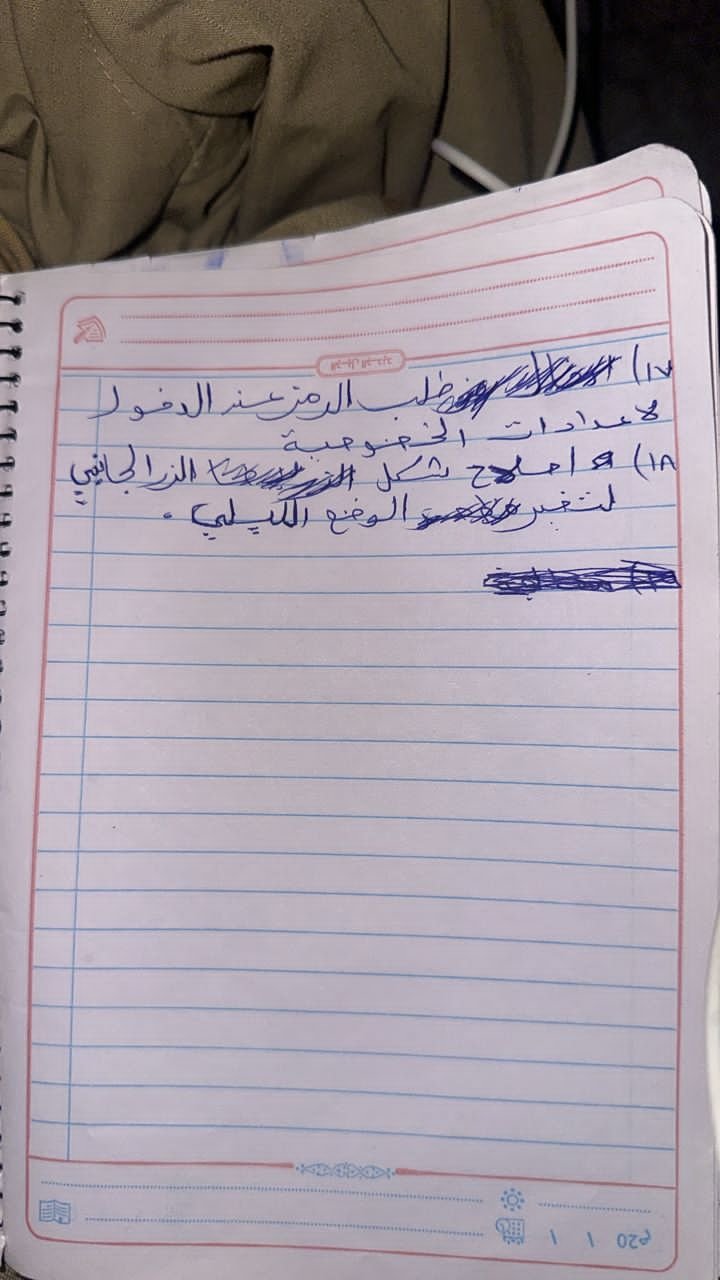 ١٧) طلب الرمز عند الدخول
لاعدادات الخصوصية
١٨) اصلاح شكل الزر الجانبي
لتغير الوضع الليلي .
م20 / /